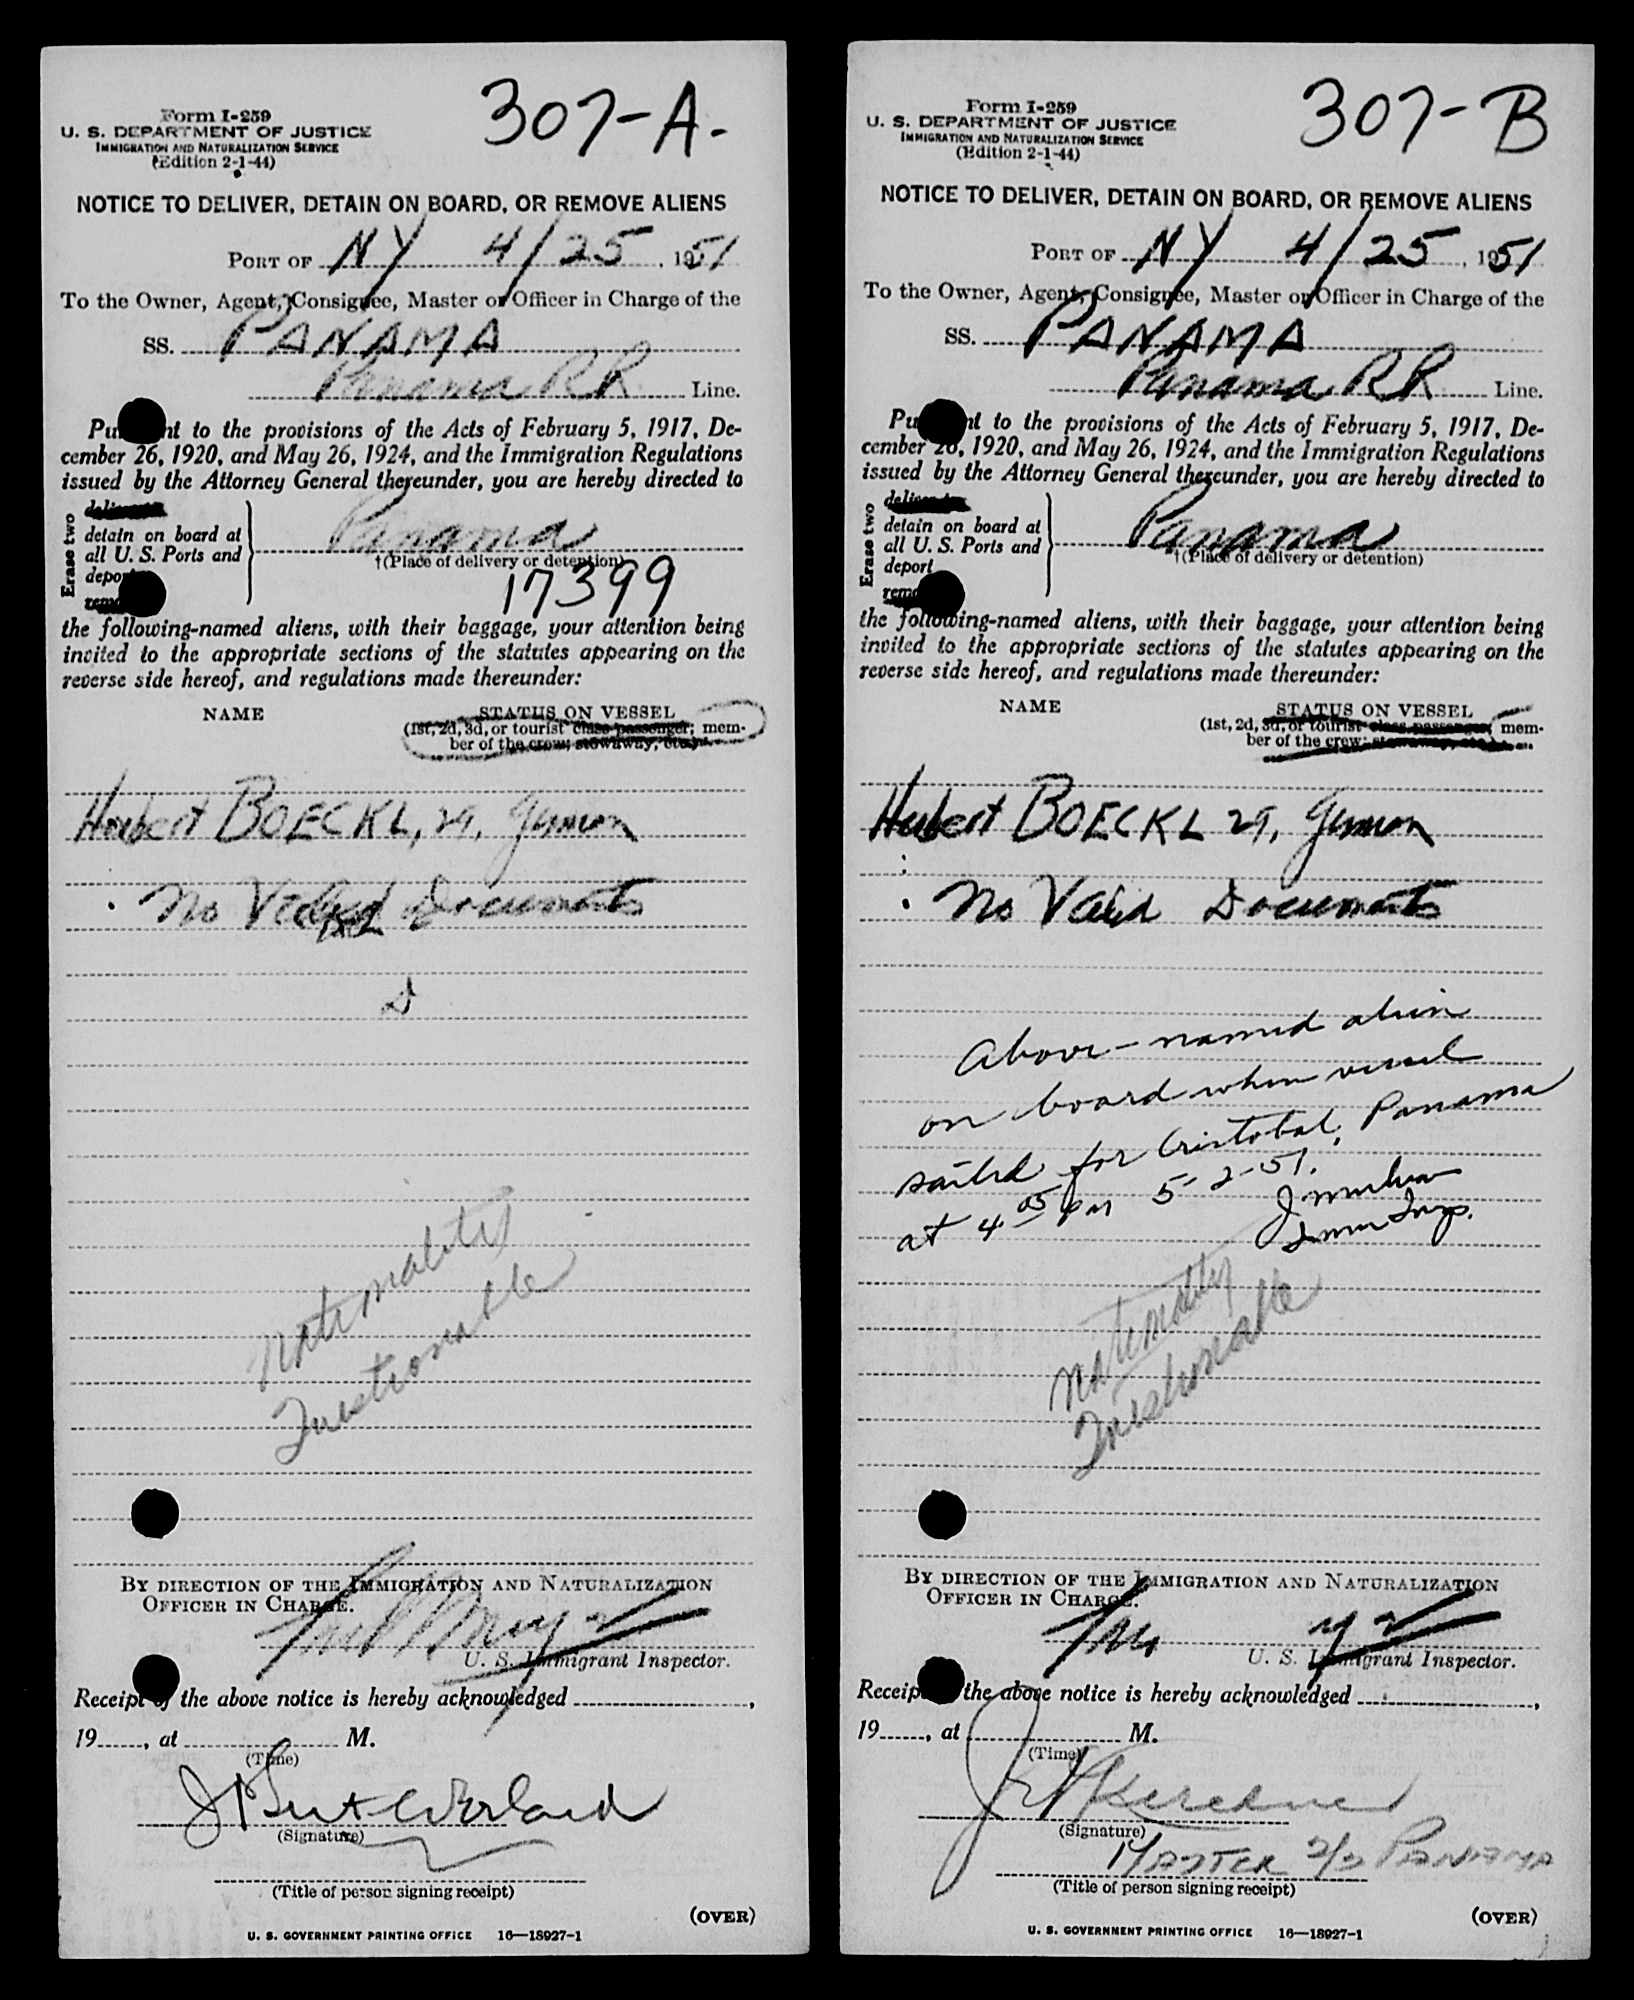 307-A.
Form I-259
U. S. DEPARTMENT OF JUSTICE
IMMIGRATION AND NATURALIZATION SERVICE
(Edition 2-1-44)
NOTICE TO DELIVER, DETAIN ON BOARD, OR REMOVE ALIENS
PORT OF NY 4/25, 1951
To the Owner, Agent, Consignee, Master or Officer in Charge of the
SS. PANAMA
Panama RR Line.
Pu nt to the provisions of the Acts of February 5, 1917, De-
cember 26, 1920, and May 26, 1924, and the Immigration Regulations
issued by the Attorney General thereunder, you are hereby directed to
Erase two
detain on board at
all U. S. Ports and
depor
Panama
†(Place of delivery or detention)
17399
the following-named aliens, with their baggage, your attention being
invited to the appropriate sections of the statutes appearing on the
reverse side hereof, and regulations made thereunder:
NAME
STATUS ON VESSEL
(1st, 2d, 3d, or tourist class passenger; mem-
ber of the crew; stowaway, etc.)
Herbert BOECKL, 29, German
No Valid Documents
D
Nationality
Questionable
BY DIRECTION OF THE IMMIGRATION AND NATURALIZATION
OFFICER IN CHARGE.
U. S. Immigrant Inspector.
Receipt of the above notice is hereby acknowledged ,
19 , at M.
(Time)
(Signature)
(Title of person signing receipt)
(OVER)
U. S. GOVERNMENT PRINTING OFFICE 16—18927-1
307-B
Form I-259
U. S. DEPARTMENT OF JUSTICE
IMMIGRATION AND NATURALIZATION SERVICE
(Edition 2-1-44)
NOTICE TO DELIVER, DETAIN ON BOARD, OR REMOVE ALIENS
PORT OF NY 4/25, 1951
To the Owner, Agent, Consignee, Master or Officer in Charge of the
SS. PANAMA
Panama RR Line.
Pu nt to the provisions of the Acts of February 5, 1917, De-
cember 26, 1920, and May 26, 1924, and the Immigration Regulations
issued by the Attorney General thereunder, you are hereby directed to
Erase two
detain on board at
all U. S. Ports and
deport
Panama
†(Place of delivery or detention)
the following-named aliens, with their baggage, your attention being
invited to the appropriate sections of the statutes appearing on the
reverse side hereof, and regulations made thereunder:
NAME
STATUS ON VESSEL
(1st, 2d, 3d, or tourist class passenger; mem-
ber of the crew; stowaway, etc.)
Herbert BOECKL 29, German
No Valid Documents
Above-named alien
on board when vessel
sailed for Cristobal, Panama
at 4 05 PM 5-2-51.
Imm Insp.
Nationality
Questionable
BY DIRECTION OF THE IMMIGRATION AND NATURALIZATION
OFFICER IN CHARGE.
U. S. Immigrant Inspector.
Receip the above notice is hereby acknowledged ,
19 , at M.
(Time)
(Signature)
MASTER S/S PANAMA
(Title of person signing receipt)
(OVER)
U. S. GOVERNMENT PRINTING OFFICE 16—18927-1